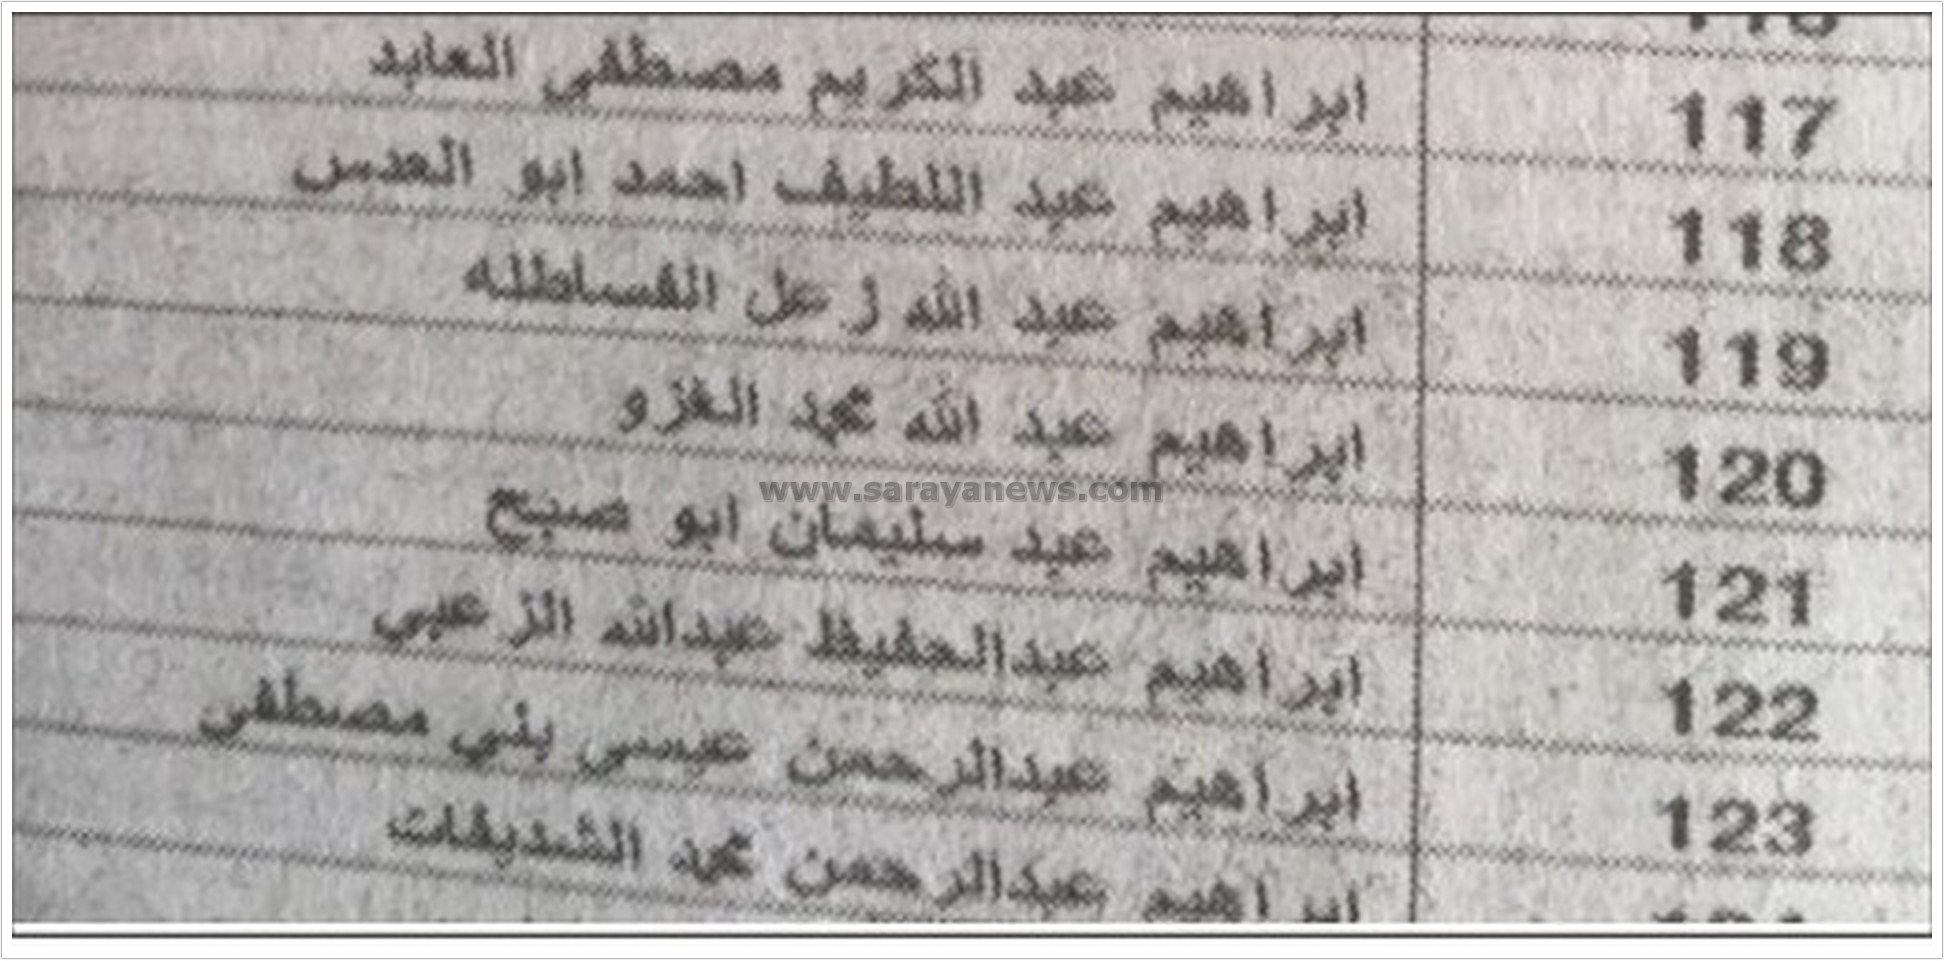 117 ابراهيم عبد الكريم مصطفى العابد
118 ابراهيم عبد اللطيف احمد ابو العدس
119 ابراهيم عبد الله زعل القساطله
120 ابراهيم عبد الله محمد الغزو
www.sarayanews.com
121 ابراهيم عبد سليمان ابو صبيح
122 ابراهيم عبدالحفيظ عبدالله الزعبي
123 ابراهيم عبدالرحمن عيسى بني مصطفى
ابراهيم عبدالرحمن محمد الشديفات